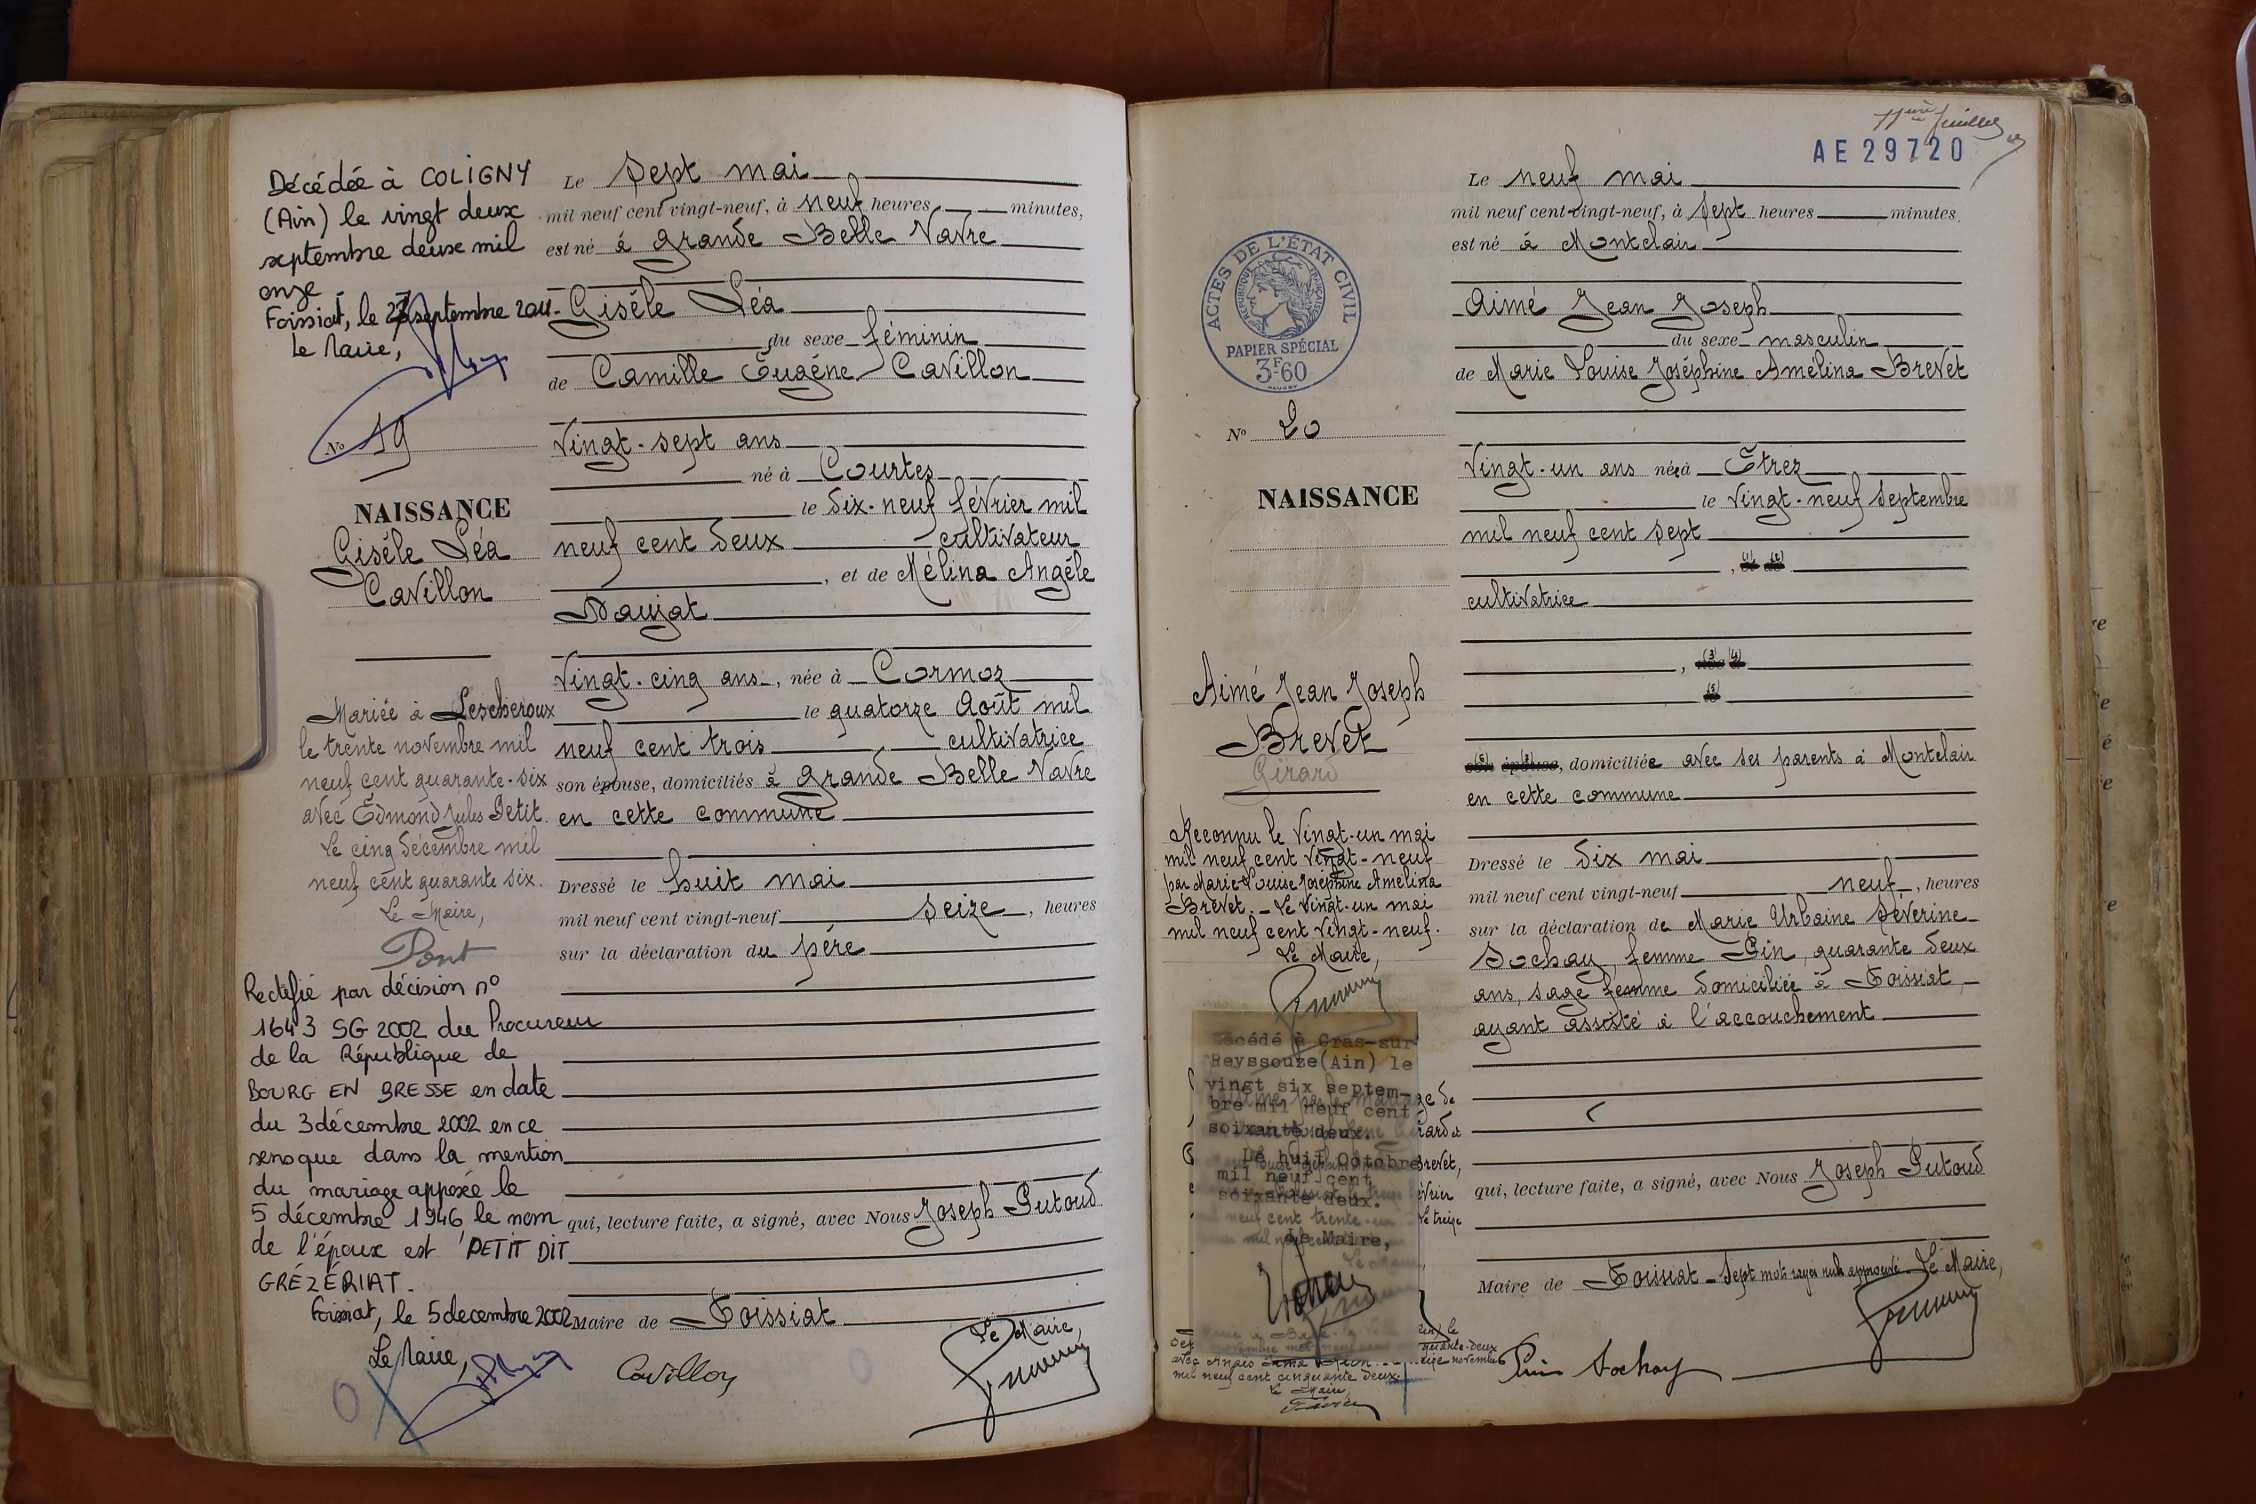 Décédée à COLIGNY
(Ain) le vingt deux
septembre deux mil
onze
Foissiat, le 27 septembre 2011.
Le Maire,
No 19
NAISSANCE
Gisèle Léa
Cavillon
Mariée à Lescheroux
le trente novembre mil
neuf cent quarante-six
avec Edmond Jules Petit.
Le cinq décembre mil
neuf cent quarante six.
Le Maire,
Pont
Rectifié par décision n°
1643 SG 2002 du Procureur
de la République de
BOURG EN BRESSE en date
du 3 décembre 2002 en ce
sens que dans la mention
du mariage apposée le
5 décembre 1946 le nom
de l'époux est PETIT DIT
GRÉZÉRIAT.
Foissiat, le 5 decembre 2002
Le Maire,
Le sept mai
mil neuf cent vingt-neuf, à neuf heures minutes,
est né à grande Belle Vavre
Gisèle Léa
du sexe féminin
de Camille Eugène Cavillon
vingt-sept ans
né à Courtes
le dix-neuf février mil
neuf cent deux cultivateur
, et de Mélina Angèle
Daujat
vingt-cinq ans, née à Cormoz
le quatorze Août mil
neuf cent trois cultivatrice
son épouse, domiciliés à grande Belle Vavre
en cette commune
Dressé le huit mai
mil neuf cent vingt-neuf seize, heures
sur la déclaration du père
qui, lecture faite, a signé, avec Nous Joseph Putoud
Maire de Foissiat
Le Maire,
Cavillon
11ème feuillet
AE 29720
ACTES DE L'ÉTAT CIVIL
RÉPUBLIQUE FRANÇAISE
PAPIER SPÉCIAL
3F60
No 20
NAISSANCE
Aimé Jean Joseph
Brevet
Girard
Reconnu le vingt-un mai
mil neuf cent vingt-neuf
par Marie Louise Joséphine Amélina
Brevet. - Le vingt-un mai
mil neuf cent vingt-neuf.
Le Maire,
Décédé à Cras-sur
Reyssouze(Ain) le
vingt six septem-
bre mil neuf cent
soixante deux.
Le huit Octobre
mil neuf cent
soixante deux.
Le Maire,
avec Anaïs
mil neuf cent cinquante deux.
Le Maire,
Le neuf mai
mil neuf cent vingt-neuf, à sept heures minutes,
est né à Montclair
Aimé Jean Joseph
du sexe masculin
de Marie Louise Joséphine Amélina Brevet
vingt-un ans née à Etrez
le vingt-neuf septembre
mil neuf cent sept
, (1) (2)
cultivatrice
, (3) (4)
(5)
, domiciliée avec ses parents à Montclair
en cette commune
Dressé le dix mai
mil neuf cent vingt-neuf neuf, heures
sur la déclaration de Marie Urbaine Séverine
Sochay, femme Pin, quarante deux
ans, sage femme domiciliée à Foissiat,
ayant assisté à l'accouchement
qui, lecture faite, a signé, avec Nous Joseph Putoud
Maire de Foissiat - Sept mots rayés nuls approuvé. Le Maire,
Pin Sochay